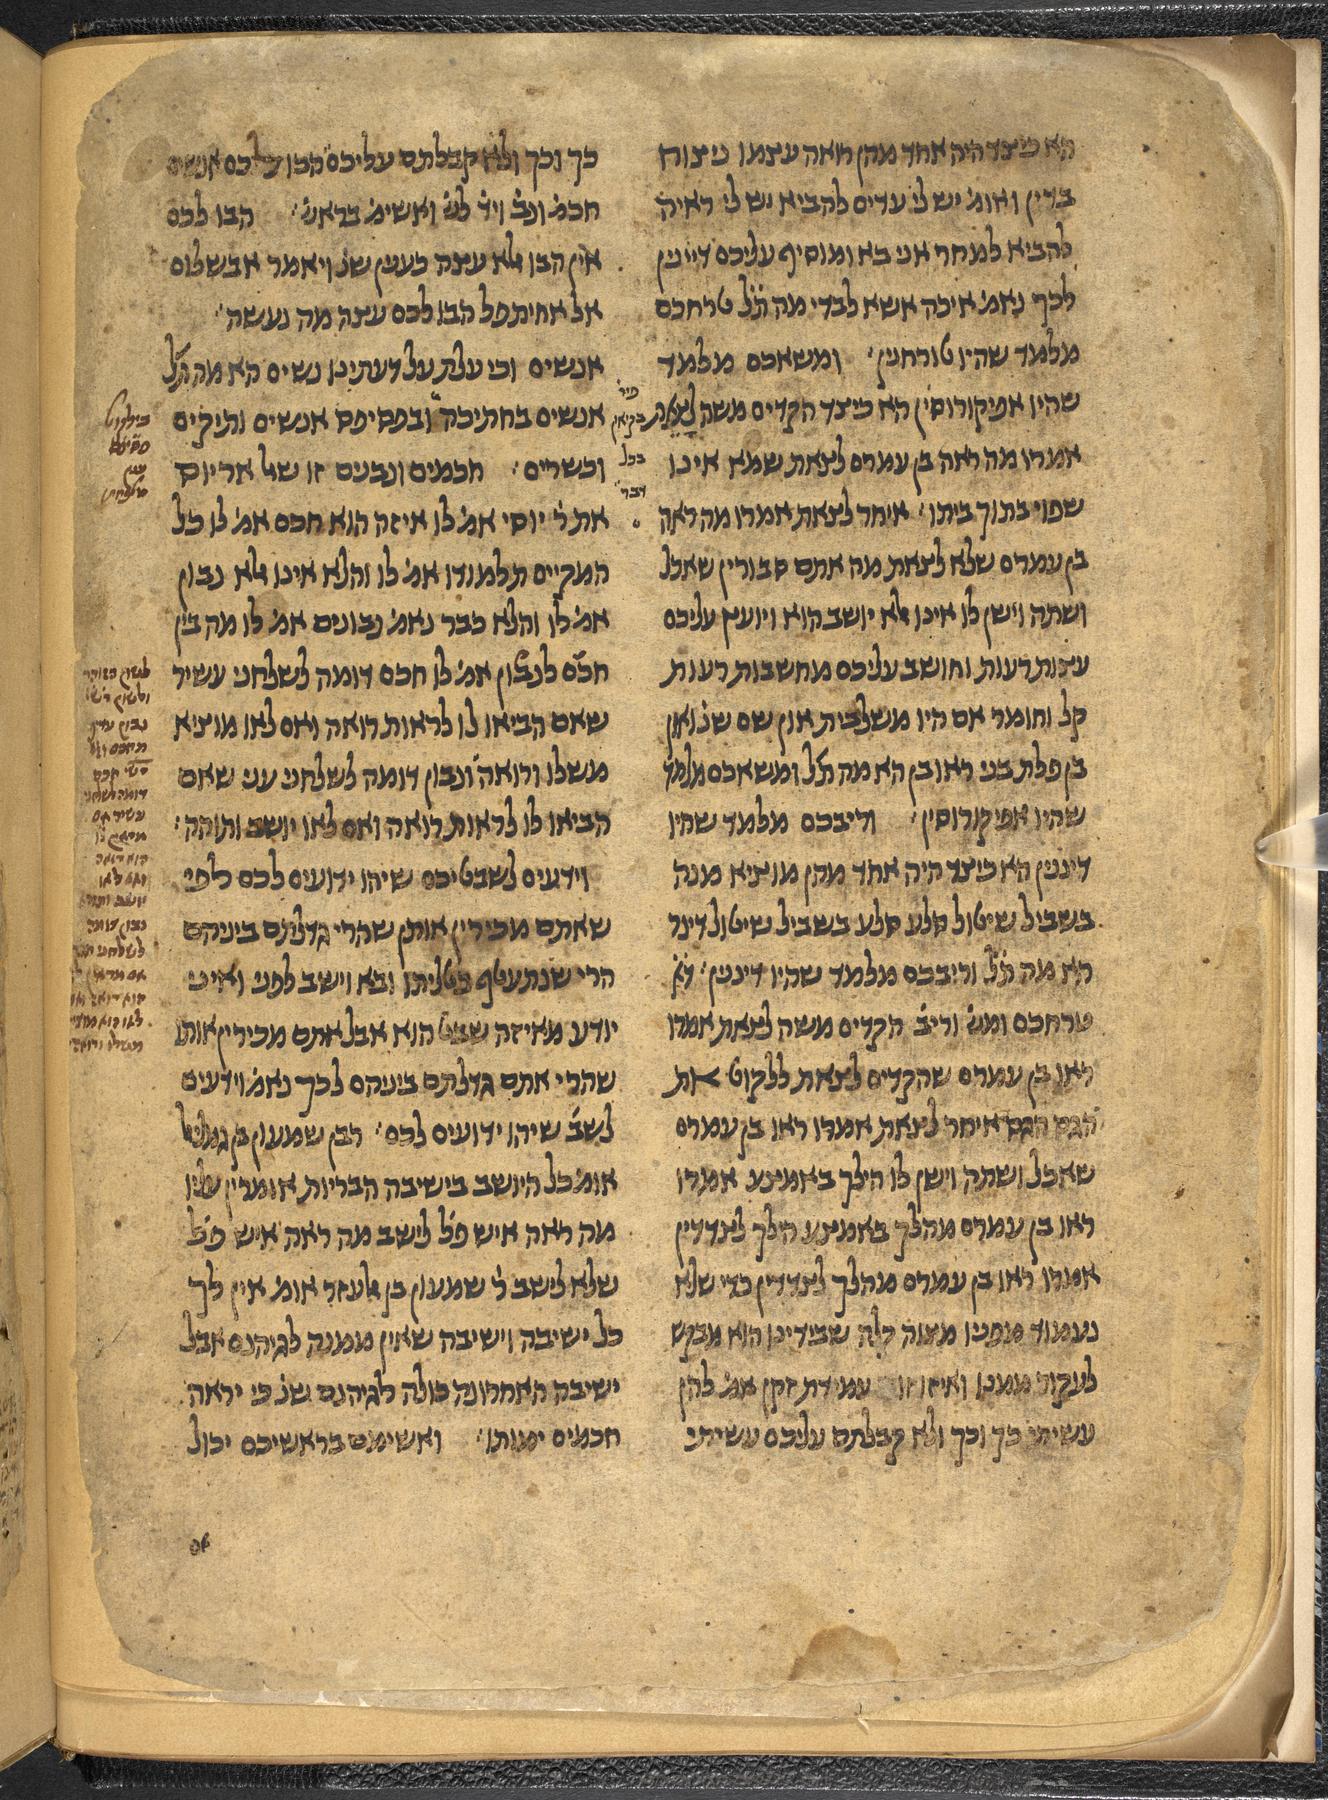 הא כיצד היה אחד מהן רואה עצמו ניצוח
בדין ואומ׳ יש לי עדים להביא יש לי ראיה
להביא למחר אני בא ומוסיף עליכם דיינין
לכך נאמ׳ איכה אשא לבדי מה ת״ל טרחכם
מלמד שהיו טורחנין׳ ומשאכם מלמד
שהיו אפיקורוסין הא כיצד הקדים משה לצאת
אמרו מה ראה בן עמרם לצאת שמא אינו
שפוי בתוך ביתו׳ איחר לצאת אמרו מה ראה
בן עמרם שלא לצאת מה אתם סבורין שאכל
ושתה וישן לו אינו אלא יושב הוא ויועץ עליכם
עצות רעות וחושב עליכם מחשבות רעות
קל וחומר אם היו משלבית און שם שנ׳ ואון
בן פלת בני ראובן הא מה ת״ל ומשאכם מלמד
שהיו אפיקורוסין׳ וריבכם מלמד שהיו
דיננין הא כיצד היה אחד מהן מוציא מנה
בשביל שיטול סלע סלע בשביל שיטול דינר
הא מה ת״ל וריבכם מלמד שהיו דיננין׳ ד״א
טרחכם ומש׳ וריב׳ הקדים משה לצאת אמרו
ראו בן עמרם שהקדים לצאת ללקוט את
הגס הגס איחר לצאת אמרו ראו בן עמרם
שאכל ושתה וישן לו הילך באמצע אמרו
ראו בן עמרם מהלך באמצע הילך לצדדין
אמרו ראו בן עמרם מהלך לצדדין כדי שלא
נעמוד מפניו מצוה קלה שבידינו הוא מבקש
לעקור ממנו ואיזו זו עמידת זקן אמ׳ להן
עשיתי כך וכך ולא קבלתם עליכם עשיתי
כך וכך ולא קבלתם עליכם הבו לכם אנשים
חכמ׳ ונב׳ ויד׳ לש׳ ואשימ׳ בראש׳ הבו לכם
אין הבו אלא עצה כענין שנ׳ ויאמר אבשלום
אל אחיתפל הבו לכם עצה מה נעשה׳
אנשים וכי עלת על דעתינו נשים הא מה ת״ל
אנשים בחתיכה ובפסיפס אנשים ותיקים
וכשרים׳ חכמים ונבנים זו שאל אריוס
את ר׳ יוסי אמ׳ לו איזה הוא חכם אמ׳ לו כל
המקיים תלמודו אמ׳ לו והלא אינו אלא נבון
אמ׳ לו והלא כבר נאמ׳ נבונים אמ׳ לו מה בין
חכם לנבון אמ׳ לו חכם דומה לשלחני עשיר
שאם הביאו לו לראות רואה ואם לאו מוציא
משלו ורואה ונבון דומה לשלחני עני שאם
הביאו לו לראות רואה ואם לאו יושב ותוהה׳
וידעים לשבטיכם שיהו ידועים לכם לפי
שאתם מכירין אותן שהרי גדלתם ביניהם
הרי שנתעטף בטליתו ובא וישב לפני ואיני
יודע מאיזה שבט הוא אבל אתם מכירין אותו
שהרי אתם גדלתם ביניהם לכך נאמ׳ וידעים
לשב׳ שיהו ידועים לכם׳ רבן שמעון בן גמליאל
אומ׳ כל היושב בישיבה הבריות אומרין עליו
מה ראה איש פל׳ לישב מה ראה איש פל׳
שלא לישב ר׳ שמעון בן אלעזר אומ׳ אין לך
כל ישיבה וישיבה שאין ממנה לגיהנם אבל
ישיבה האחרונה כולה לגיהנם שנ׳ כי יראה
חכמים ימותו׳ ואשימם בראשיכם יכול
פיר׳
בקיאין
בכל
דבר